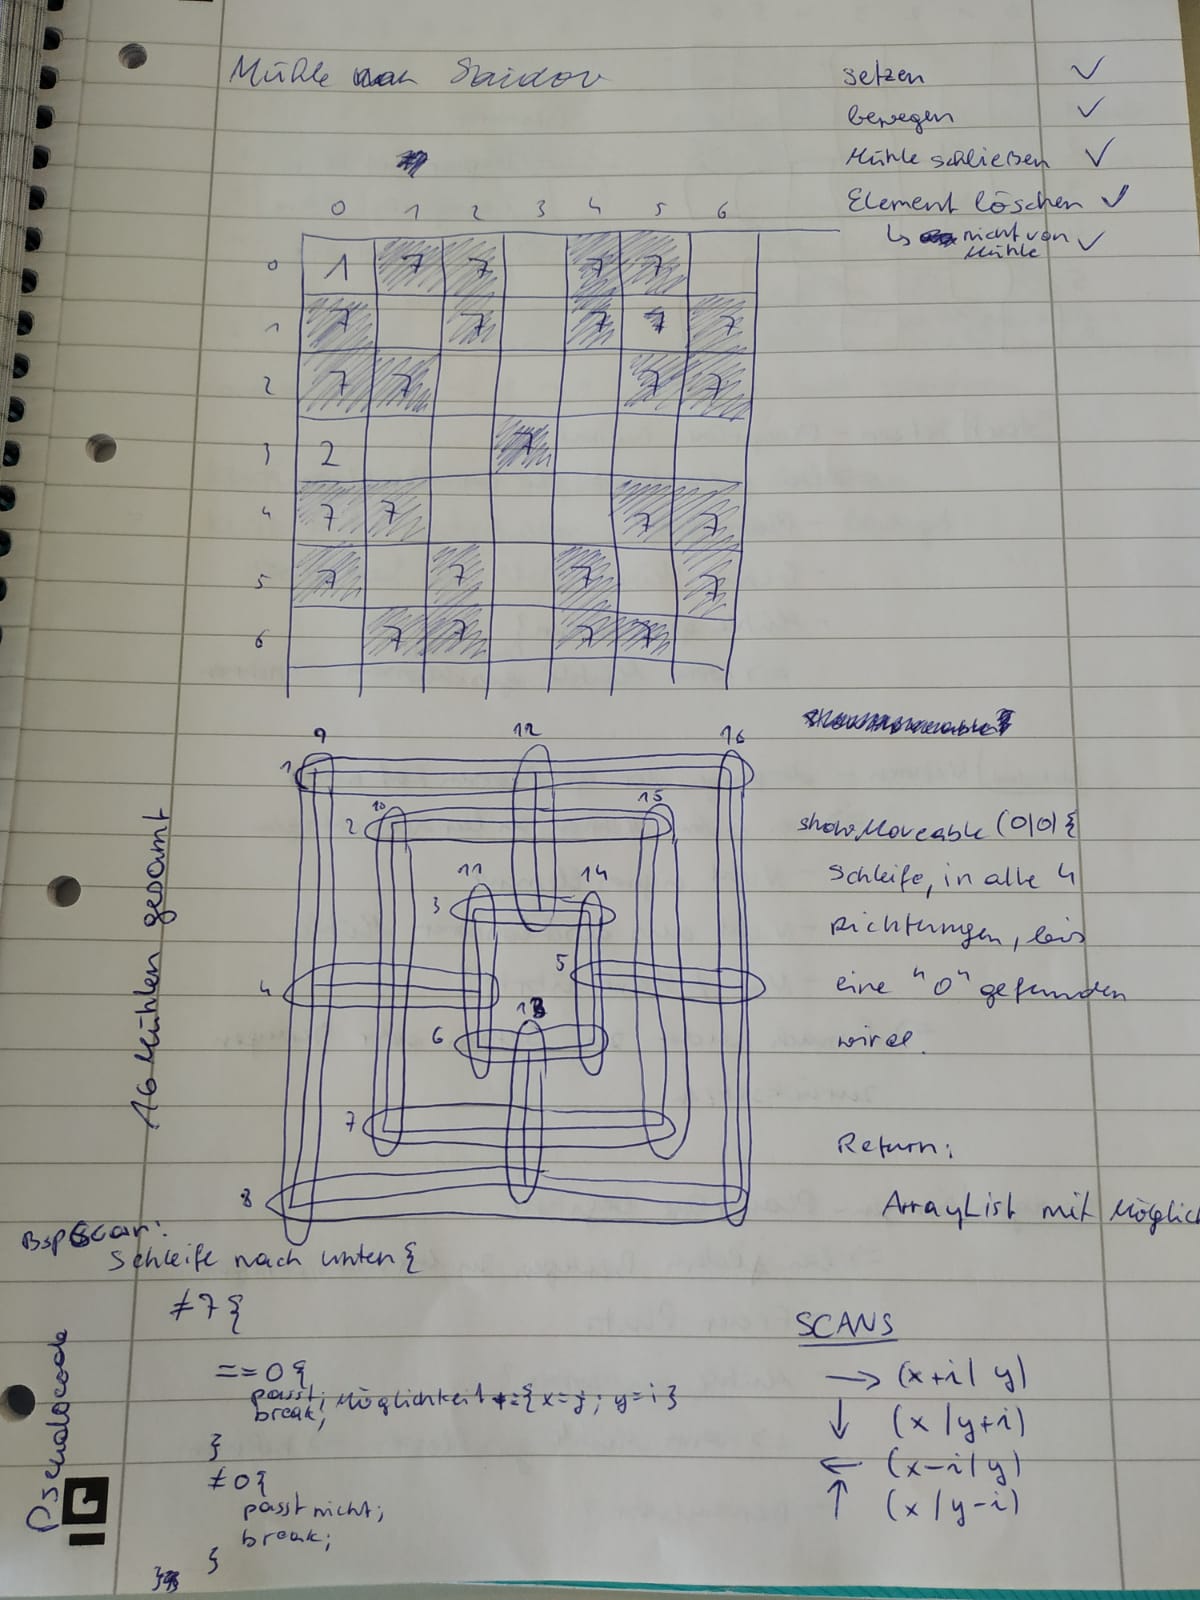 Mühle
setzen ✓
bewegen ✓
Mühle schließen ✓
Element löschen ✓
↳ nicht von Mühle ✓
0 1 2 3 4 5 6
0 1 7 7 7 7
1 7 7 7 7 7
2 7 7 7 7
3 2 7
4 7 7 7 7
5 7 7 7 7
6 7 7 7 7
9 12 16
1
10 15
2
11 14
3
5
4
13
6
7
8
16 Mühlen gesamt
showMoveable (0|0) {
Schleife, in alle 4
Richtungen, bis
eine "0" gefunden
wird.
Return:
ArrayList mit Möglich
Bsp Scan:
Schleife nach unten {
≠ 7 {
== 0 {
passt; Möglichkeit += {x=j; y=i}
break;
}
≠ 0 {
passt nicht;
break;
}
}
Pseudocode
SCANS
→ (x+i | y)
↓ (x | y+i)
← (x-i | y)
↑ (x | y-i)